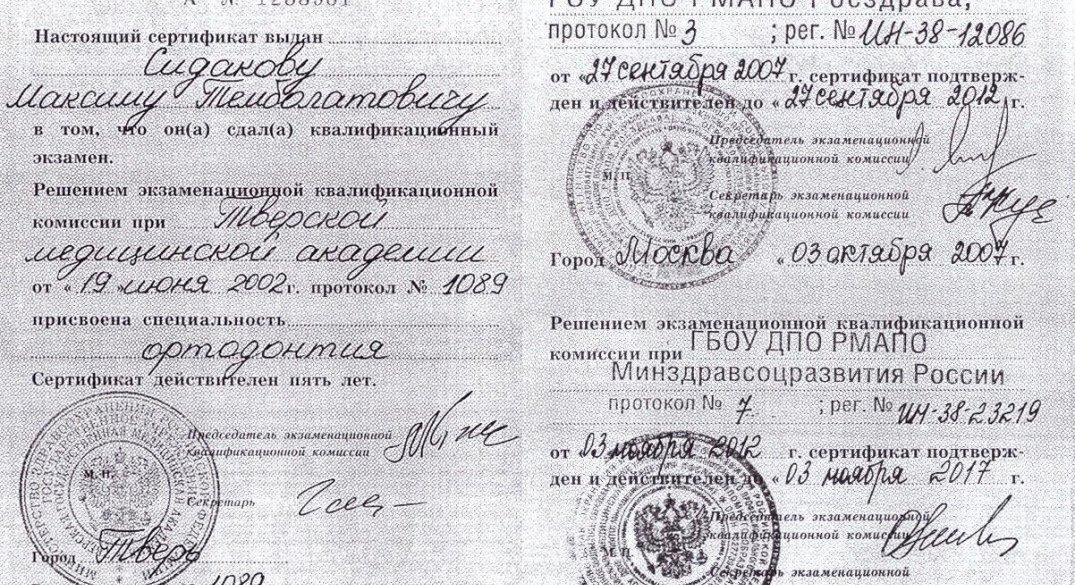 Настоящий сертификат выдан
Сидакову
Максиму Темболатовичу
в том, что он(а) сдал(а) квалификационный
экзамен.
Решением экзаменационной квалификационной
комиссии при Тверской
медицинской академии
от « 19 » июня 2002г. протокол № 1089
присвоена специальность
ортодонтия
Сертификат действителен пять лет.
Председатель экзаменационной
квалификационной комиссии
М. П.
Секретарь
Город Тверь
1089
ГОУ ДПО РМАПО Росздрава,
протокол № 3 ; рег. № ИН-38-12086
от «27 сентября 2007 г. сертификат подтверж-
ден и действителен до « 27 сентября 2012 г.
Председатель экзаменационной
квалификационной комиссии
М. П.
Секретарь экзаменационной
квалификационной комиссии
Город Москва « 03 октября 2007 г.
Решением экзаменационной квалификационной
комиссии при ГБОУ ДПО РМАПО
Минздравсоцразвития России
протокол № 7 ; рег. № ИН-38-23219
от 03 ноября 2012 г. сертификат подтверж-
ден и действителен до « 03 ноября 2017 г.
Председатель экзаменационной
квалификационной комиссии
М. П.
Секретарь экзаменационной